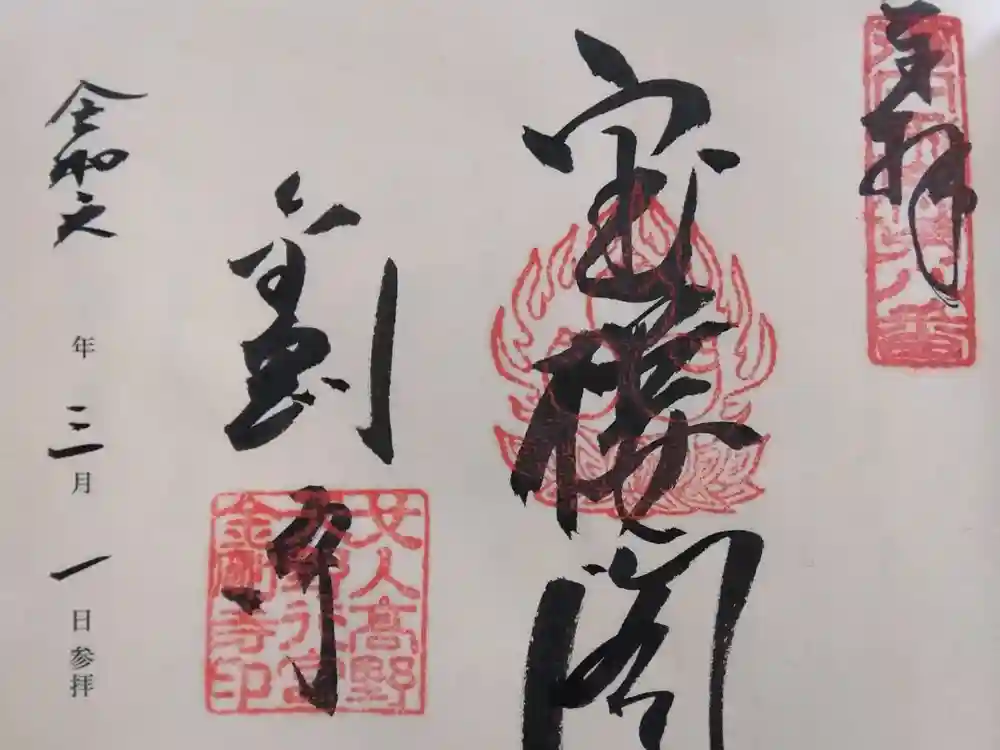 奉拝
宝楼閣
金剛寺
女人高野
天野行宮
金剛寺印
令和六年三月一日参拝